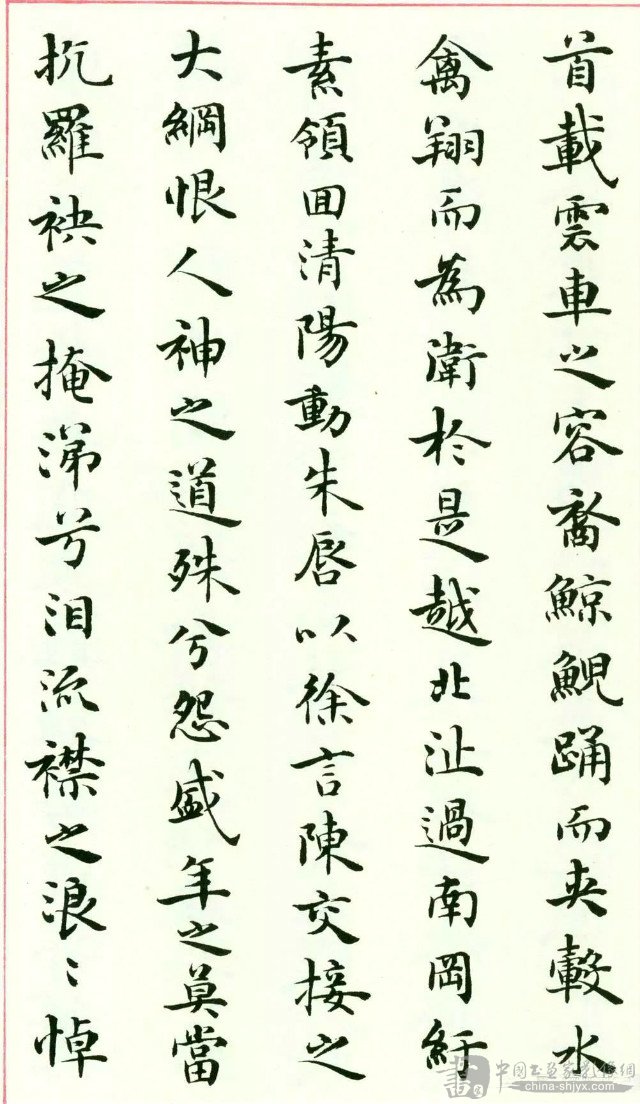 首載雲車之容裔鯨鯢踊而夾轂水
禽翔而為衛於是越北沚過南岡紆
素領囬清陽動朱唇以徐言陳交接之
大綱恨人神之道殊兮怨盛年之莫當
抗羅袂之掩涕兮泪流襟之浪〻悼
china-shjyx.com